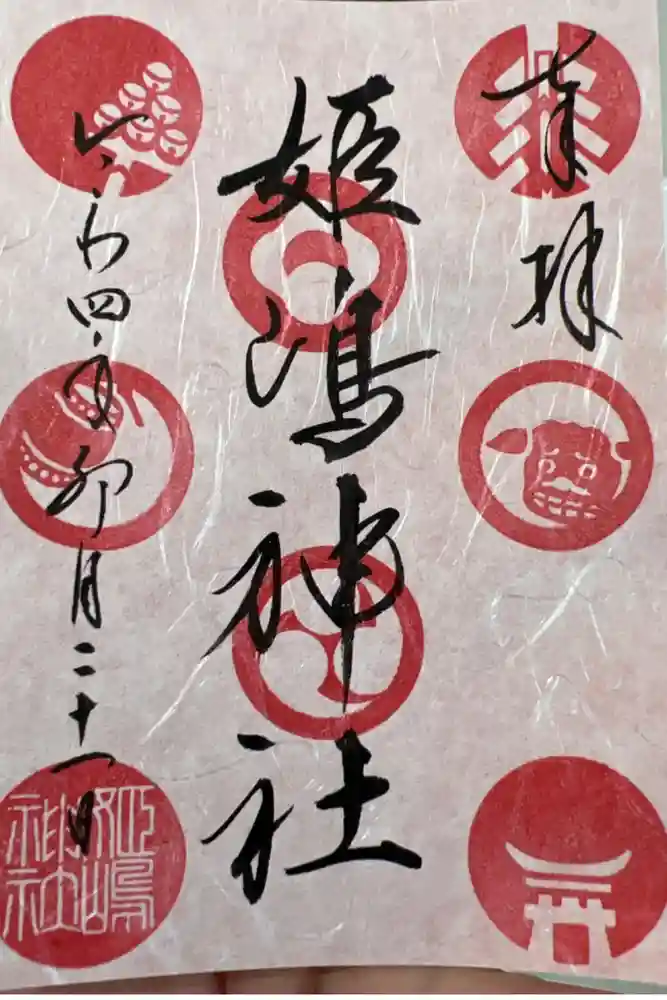 奉拝
姫嶋神社
令和四年卯月二十一日
姫嶋
神社